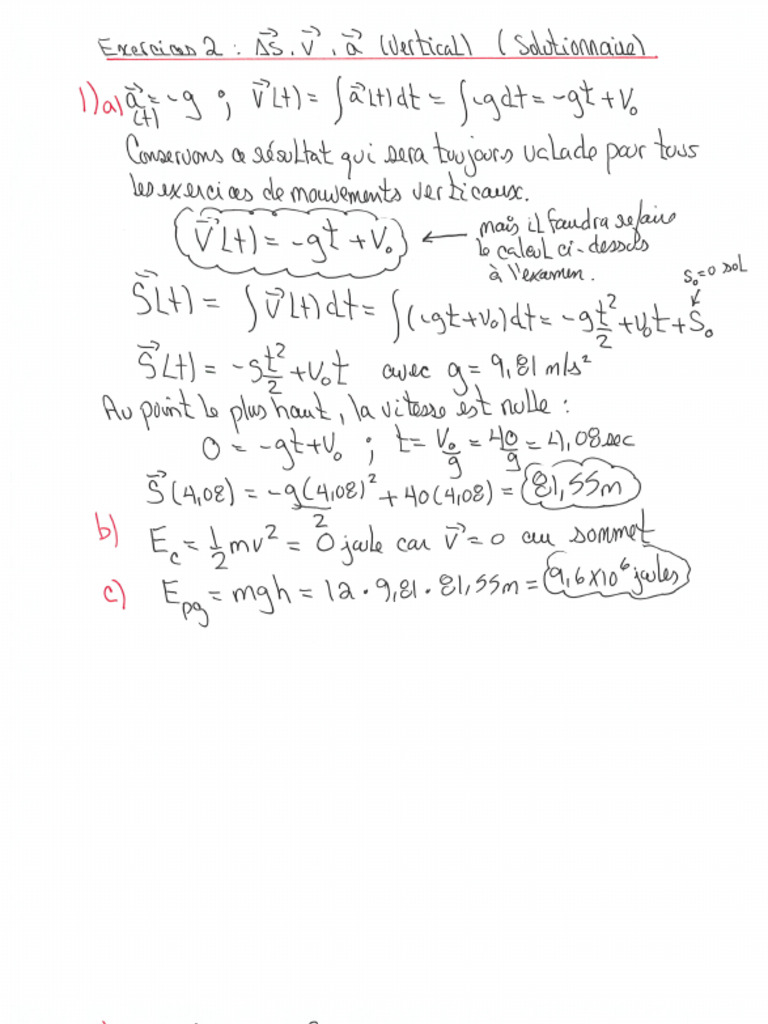 Exercices 2 : Δs⃗, v⃗, a⃗ (Vertical) (Solutionnaire)
1) a) a⃗(t) = -g ; v⃗(t) = ∫a⃗(t)dt = ∫-gdt = -gt + V₀
Conservons ce résultat qui sera toujours valade pour tous
les exercices de mouvements verticaux.
v⃗(t) = -gt + V₀ ← mais il faudra refaire
le calcul ci-dessus
à l'examen.
S₀=0 sol
S⃗(t) = ∫v⃗(t)dt = ∫(-gt+v₀)dt = -gt²/2 + v₀t + S₀
S⃗(t) = -gt²/2 + v₀t avec g = 9,81 m/s²
Au point le plus haut, la vitesse est nulle :
0 = -gt+V₀ ; t = V₀/g = 40/g = 4,08 sec
S⃗(4,08) = -g(4,08)²/2 + 40(4,08) = 81,55m
b) Ec = 1/2 mv² = 0 joule car v⃗=0 au sommet
c) Epg = mgh = 12 · 9,81 · 81,55m = 9,6x10⁶ joules